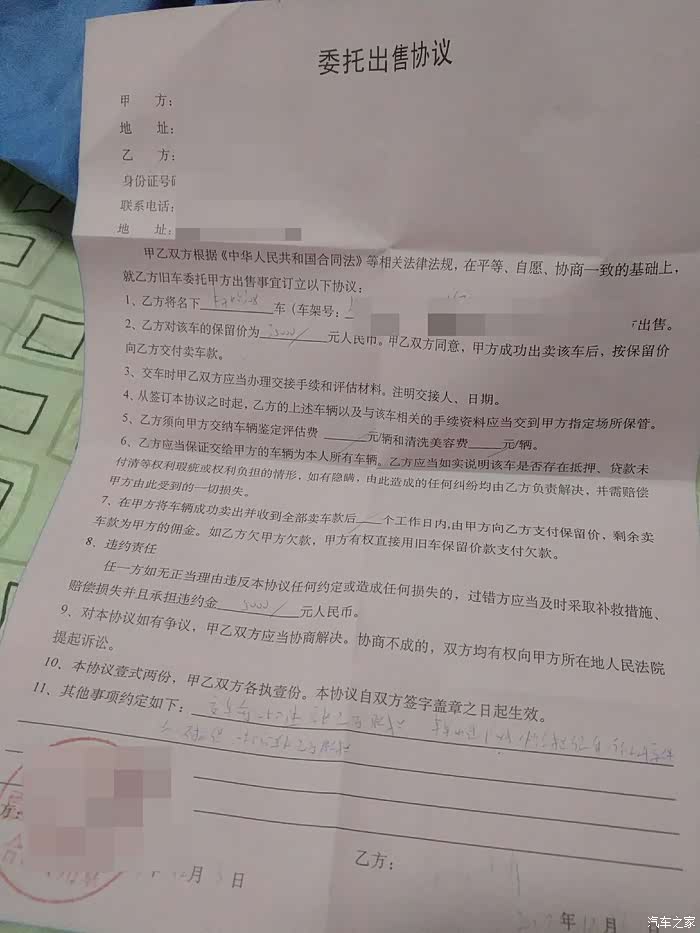 委托出售协议
甲 方：
地 址：
乙 方：
身份证号码
联系电话：
地 址：
甲乙双方根据《中华人民共和国合同法》等相关法律法规，在平等、自愿、协商一致的基础上，
就乙方旧车委托甲方出售事宜订立以下协议：
1、乙方将名下 车（车架号： 出售。
2、乙方对该车的保留价为 元人民币。甲乙双方同意，甲方成功出卖该车后，按保留价
向乙方交付卖车款。
3、交车时甲乙双方应当办理交接手续和评估材料。注明交接人、日期。
4、从签订本协议之时起，乙方的上述车辆以及与该车相关的手续资料应当交到甲方指定场所保管。
5、乙方须向甲方交纳车辆鉴定评估费 元/辆和清洗美容费 元/辆。
6、乙方应当保证交给甲方的车辆为本人所有车辆。乙方应当如实说明该车是否存在抵押、贷款未
付清等权利瑕疵或权利负担的情形，如有隐瞒，由此造成的任何纠纷均由乙方负责解决，并需赔偿
甲方由此受到的一切损失。
7、在甲方将车辆成功卖出并收到全部卖车款后 个工作日内，由甲方向乙方支付保留价，剩余卖
车款为甲方的佣金。如乙方欠甲方欠款，甲方有权直接用旧车保留价款支付欠款。
8、违约责任
任一方如无正当理由违反本协议任何约定或造成任何损失的，过错方应当及时采取补救措施、
赔偿损失并且承担违约金 5000 元人民币。
9、对本协议如有争议，甲乙双方应当协商解决。协商不成的，双方均有权向甲方所在地人民法院
提起诉讼。
10、本协议壹式两份，甲乙双方各执壹份。本协议自双方签字盖章之日起生效。
11、其他事项约定如下：
方：
乙方：
月 日
年 月 日
汽车之家